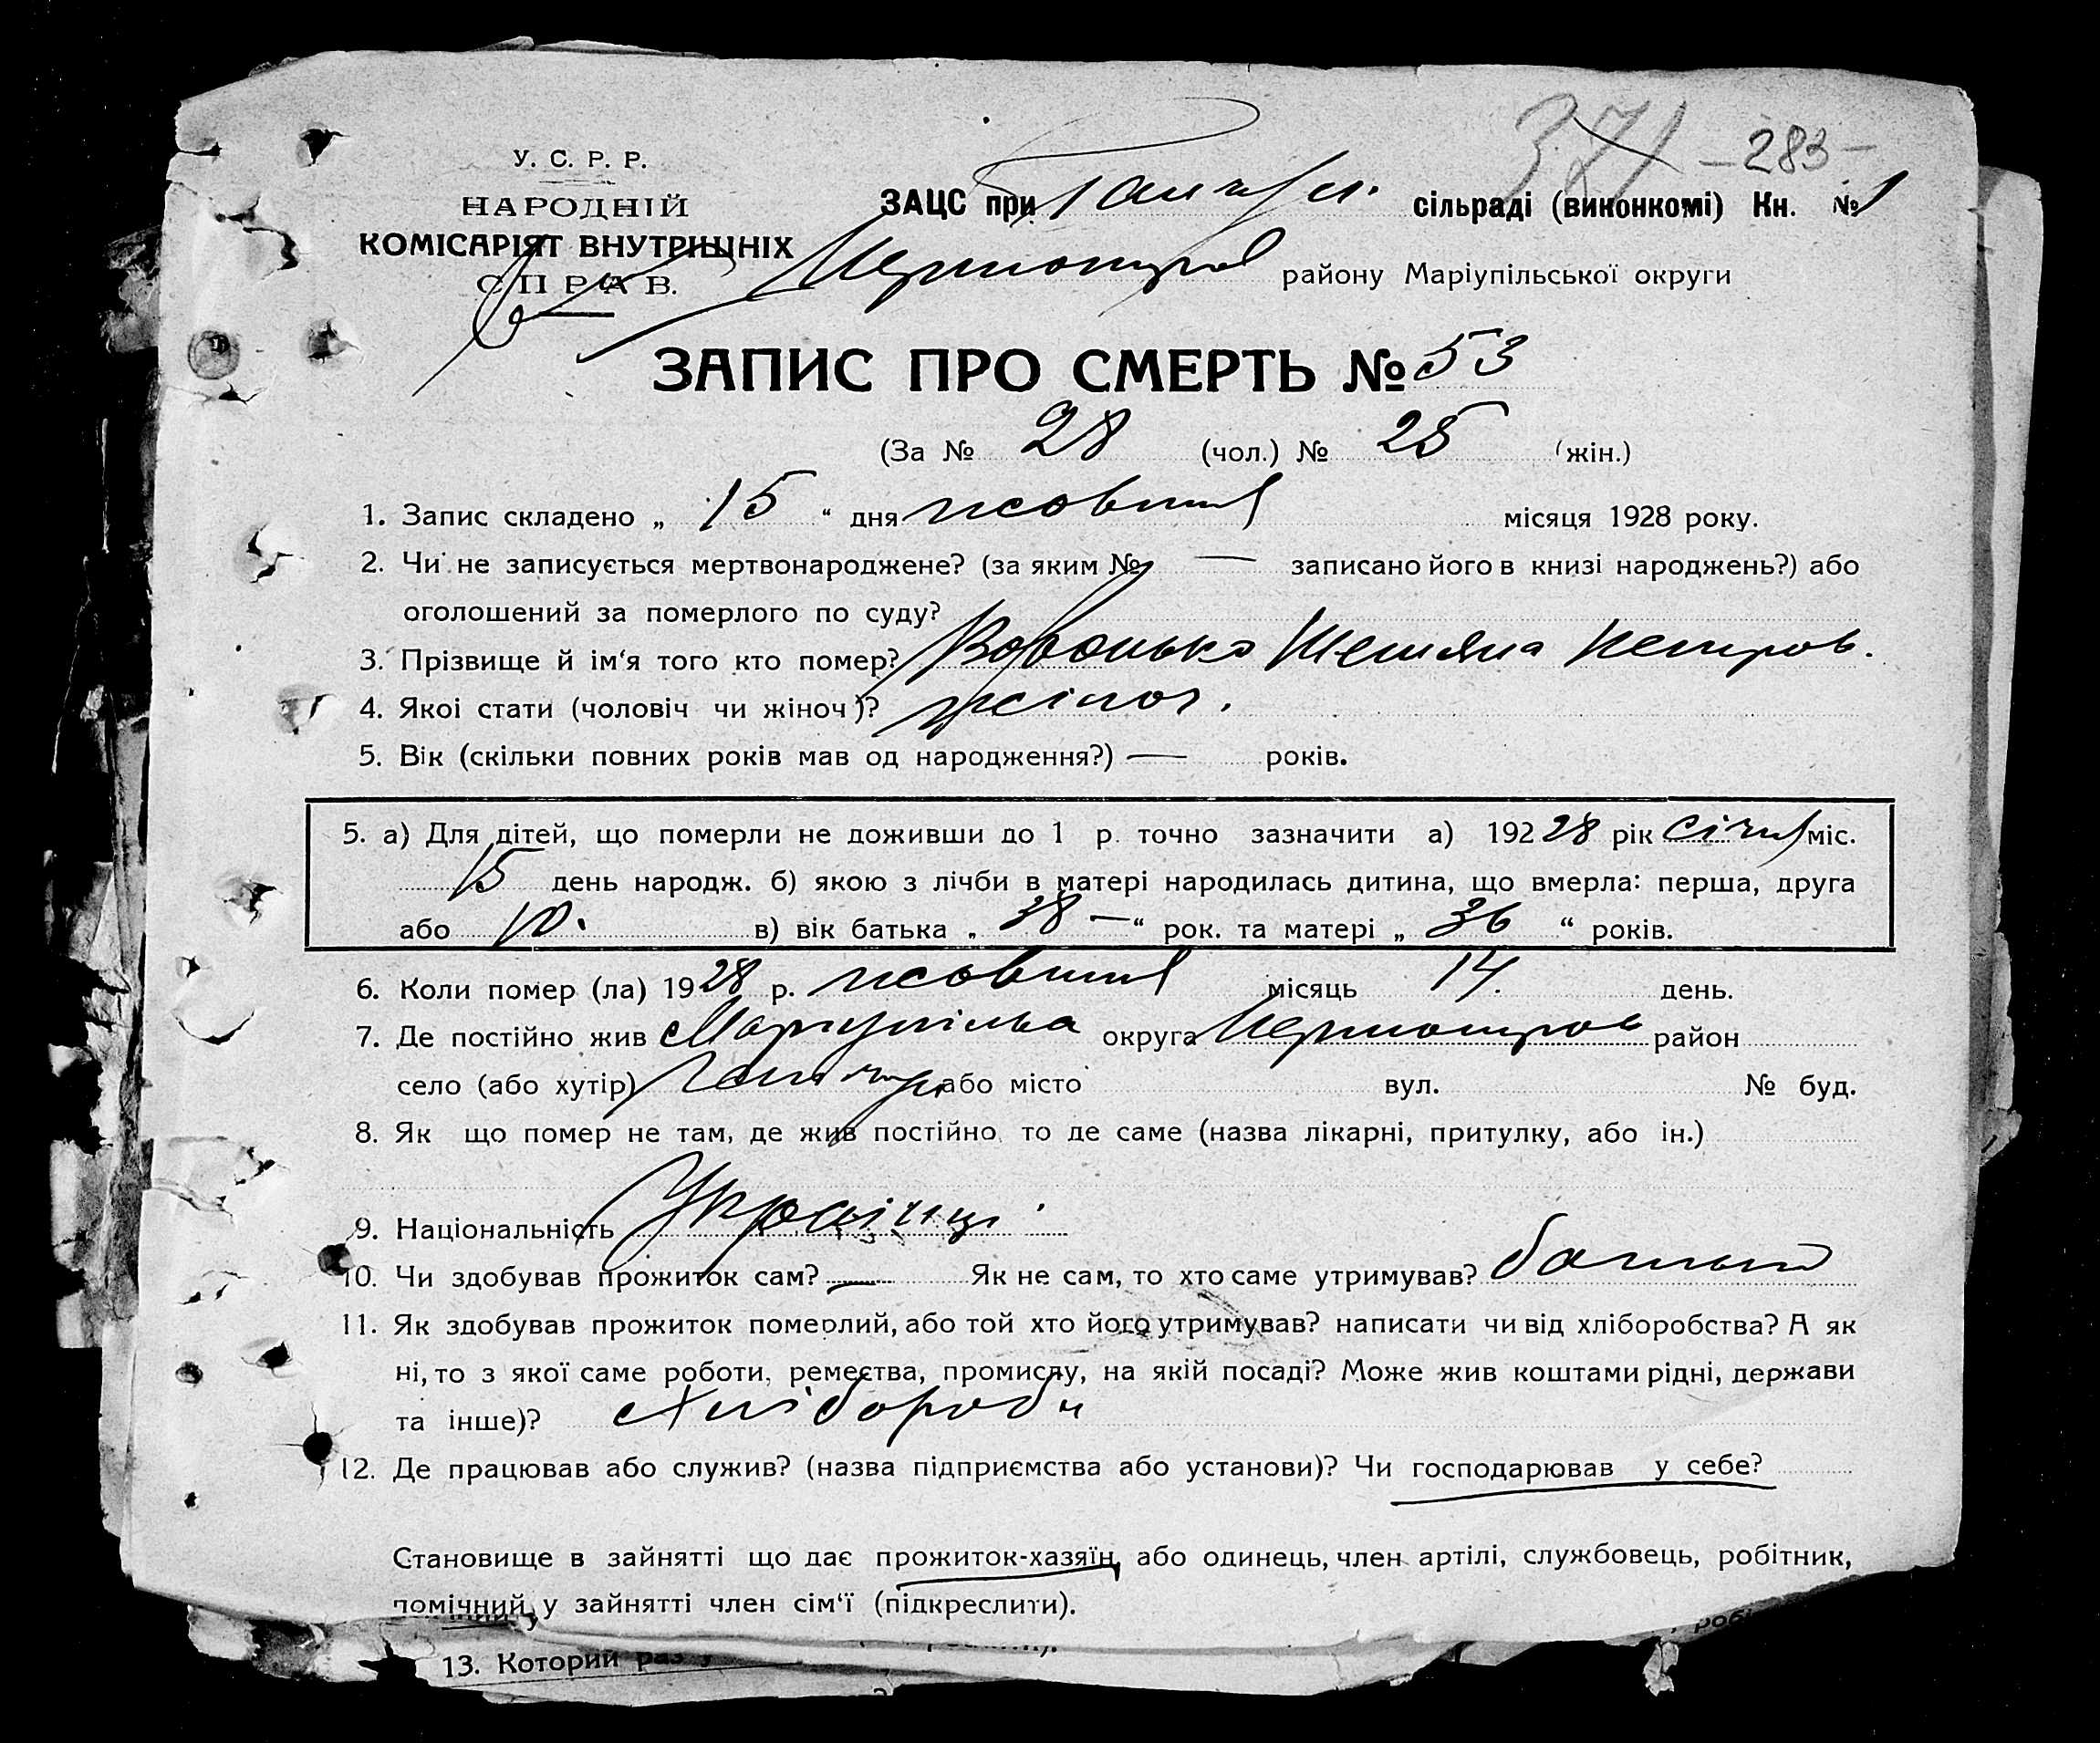 371 — 283 —
У. С. Р. Р.
НАРОДНІЙ
КОМІСАРІЯТ ВНУТРІШНІХ
СПРАВ.
ЗАЦС при сільраді (виконкомі) Кн. № 1
району Маріупільської округи
ЗАПИС ПРО СМЕРТЬ № 53
(За № 28 (чол.) № 25 (жін.)
1. Запис складено „ 15 “ дня жовтня місяця 1928 року.
2. Чи не записується мертвонароджене? (за яким № — записано його в книзі народжень?) або
оголошений за померлого по суду?
3. Прізвище й ім‘я того кто помер? Петров.
4. Якоі стати (чоловіч чи жіноч)? жіноч.
5. Вік (скільки повних років мав од народження?) — років.
5. а) Для дітей, що померли не доживши до 1 р. точно зазначити а) 192 28 рік січня міс.
15 день народж. б) якою з лічби в матері народилась дитина, що вмерла: перша, друга
або 10. в) вік батька „ 38 — “ рок. та матері „ 36 “ років.
6. Коли помер (ла) 1928 р. жовтня місяць 14. день.
7. Де постійно жив Маріупільска округа район
село (або хутір) або місто вул. № буд.
8. Як що помер не там, де жив постійно то де саме (назва лікарні, притулку, або ін.)
9. Національність Українці
10. Чи здобував прожиток сам? — Як не сам, то хто саме утримував? батько
11. Як здобував прожиток померлий, або той хто його утримував? написати чи від хліборобства? А як
ні, то з якої саме роботи, ремества, промислу, на якій посаді? Може жив коштами рідні, держави
та інше)? Хлібороби
12. Де працював або служив? (назва підприємства або установи)? Чи господарював у себе?
Становище в зайнятті що дає прожиток-хазяїн, або одинець, член артілі, службовець, робітник,
помічний у зайнятті член сім‘ї (підкреслити).
13. Которий раз у